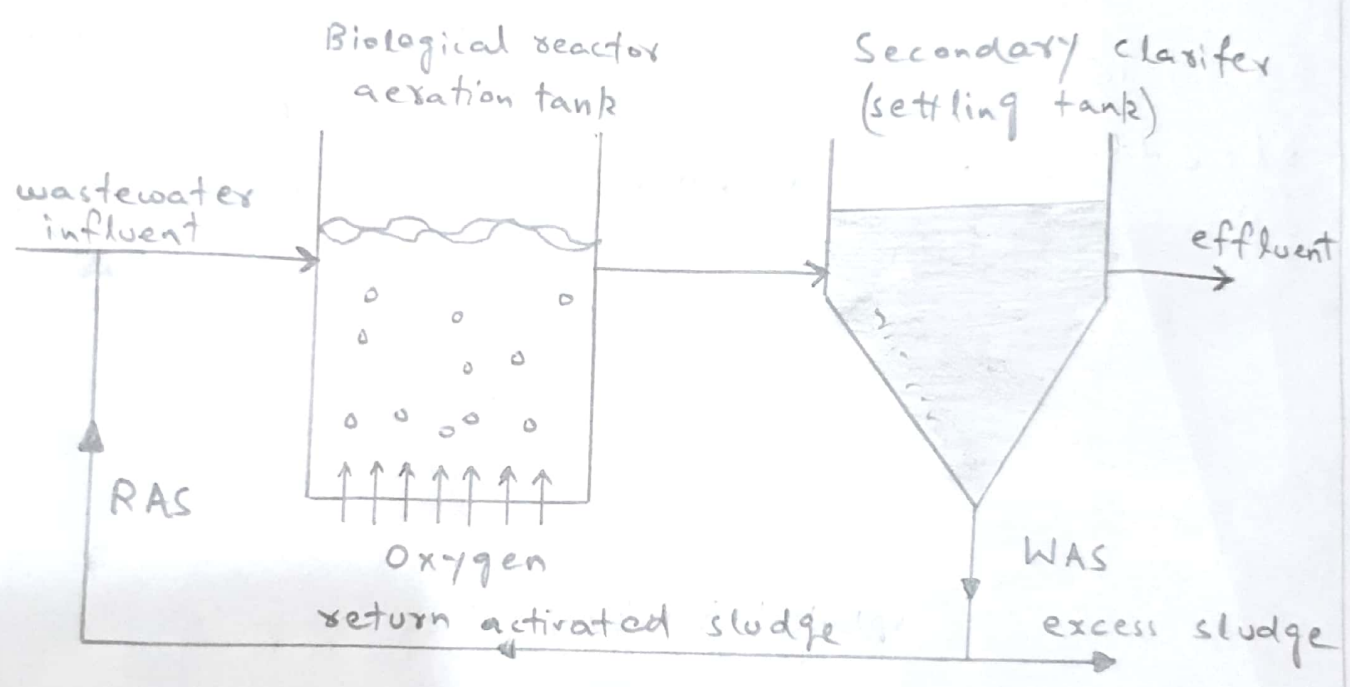 Biological reactor
aeration tank
Secondary clarifer
(settling tank)
wastewater
influent
effluent
RAS
Oxygen
WAS
return activated sludge
excess sludge